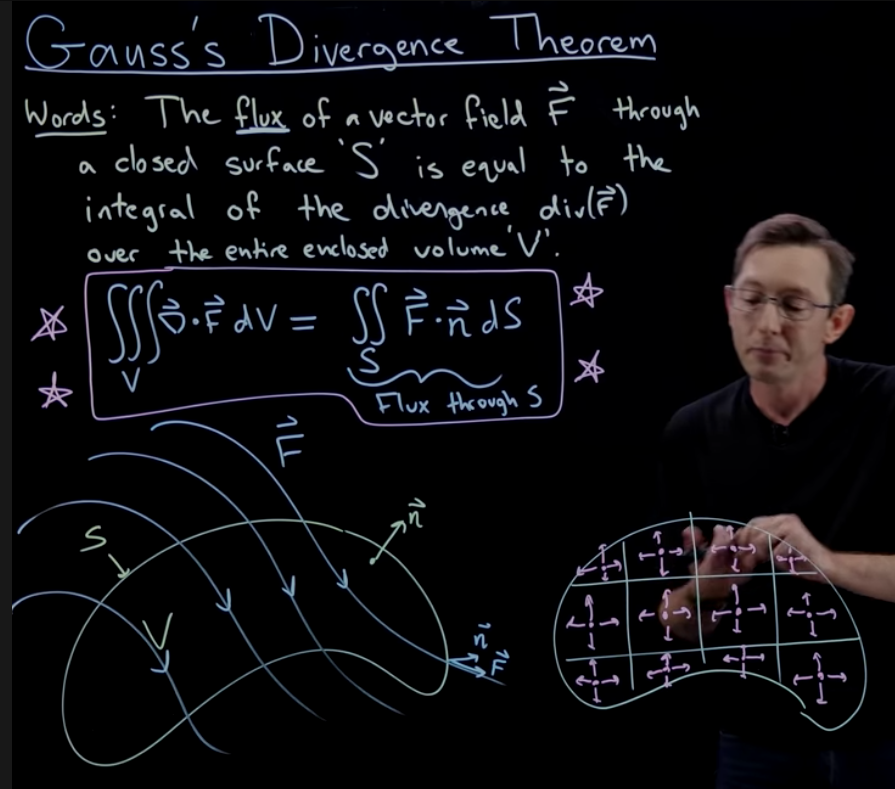 Gauss's Divergence Theorem
Words: The flux of a vector field F⃗ through
a closed surface 'S' is equal to the
integral of the divergence div(F⃗)
over the entire enclosed volume 'V'.
∭_V ∇⃗·F⃗ dV = ∬_S F⃗·n⃗ dS
Flux through S
F⃗
n⃗
S
V
n⃗
F⃗